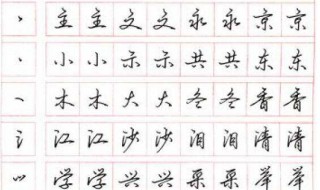 丶 主 主 文 文 永 永 京 京
丶 小 小 示 示 共 共 东 东
㇏ 木 木 大 大 冬 冬 香 香
氵 江 江 沙 沙 泪 泪 清 清
⺍ 学 学 兴 兴 栗 栗 举 举